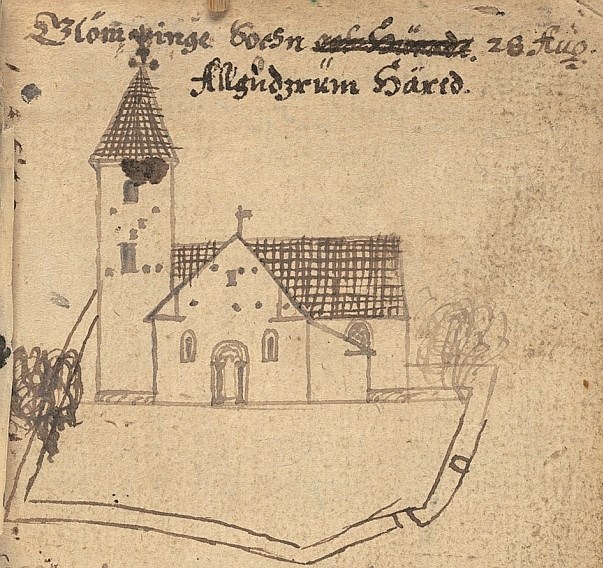 Glömminge Sochn 28 Aug.
Allgudzrüm Häred.